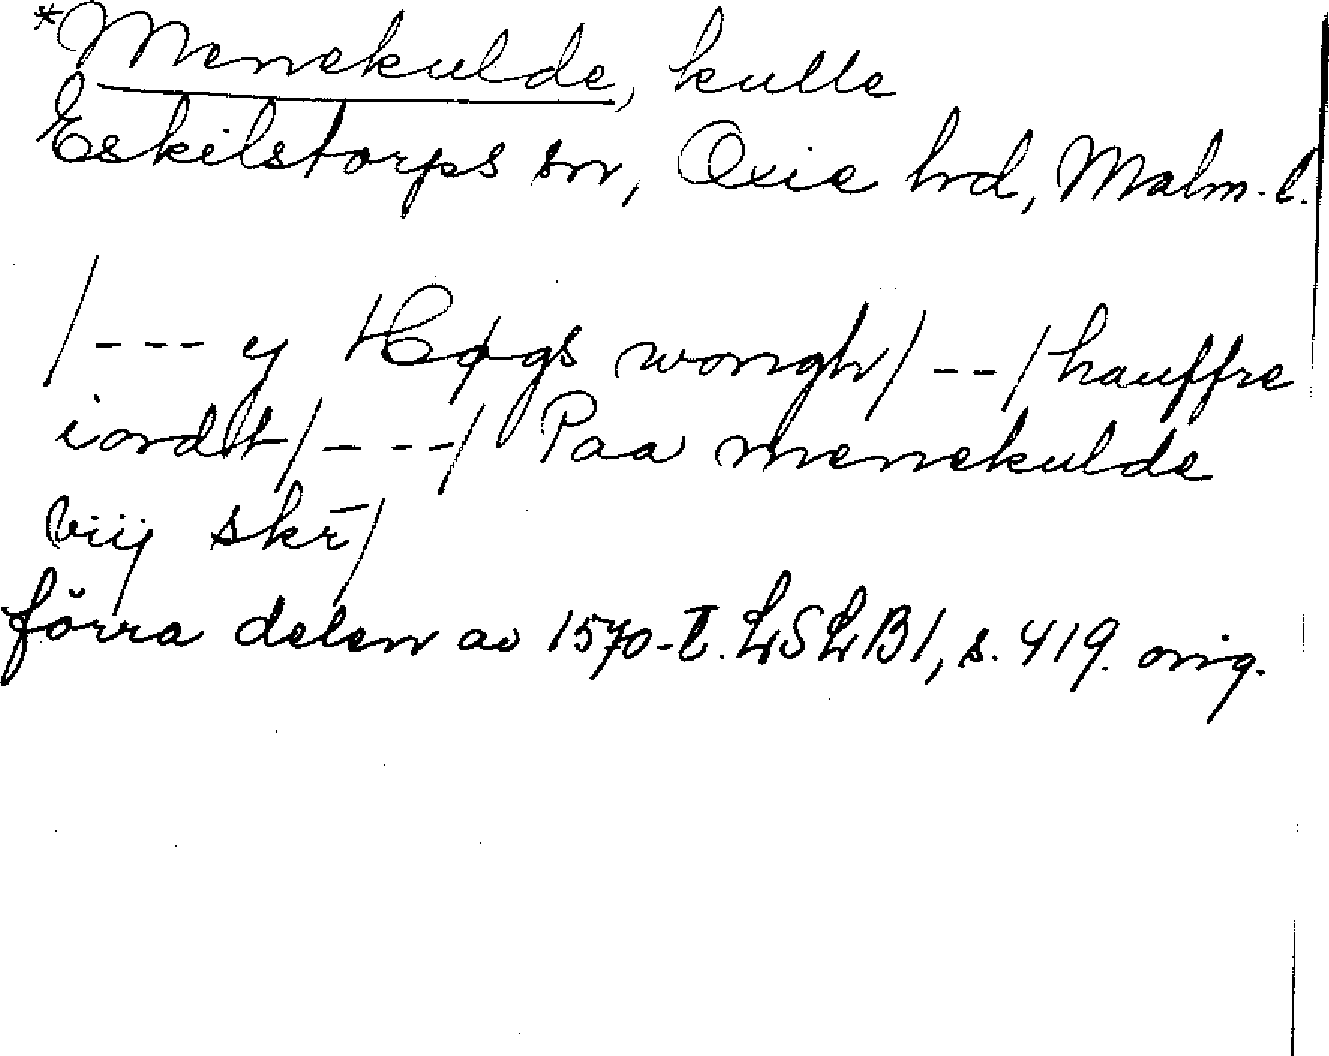 *Menekulde, kulle
Eskilstorps sn, Oxie hrd, Malm. l.
/--- y Høgs wongh/--/hauffre
iordt/---/ Paa menekulde
viij skr̄/
förra delen av 1570-t. LSLB1, s. 419. orig.